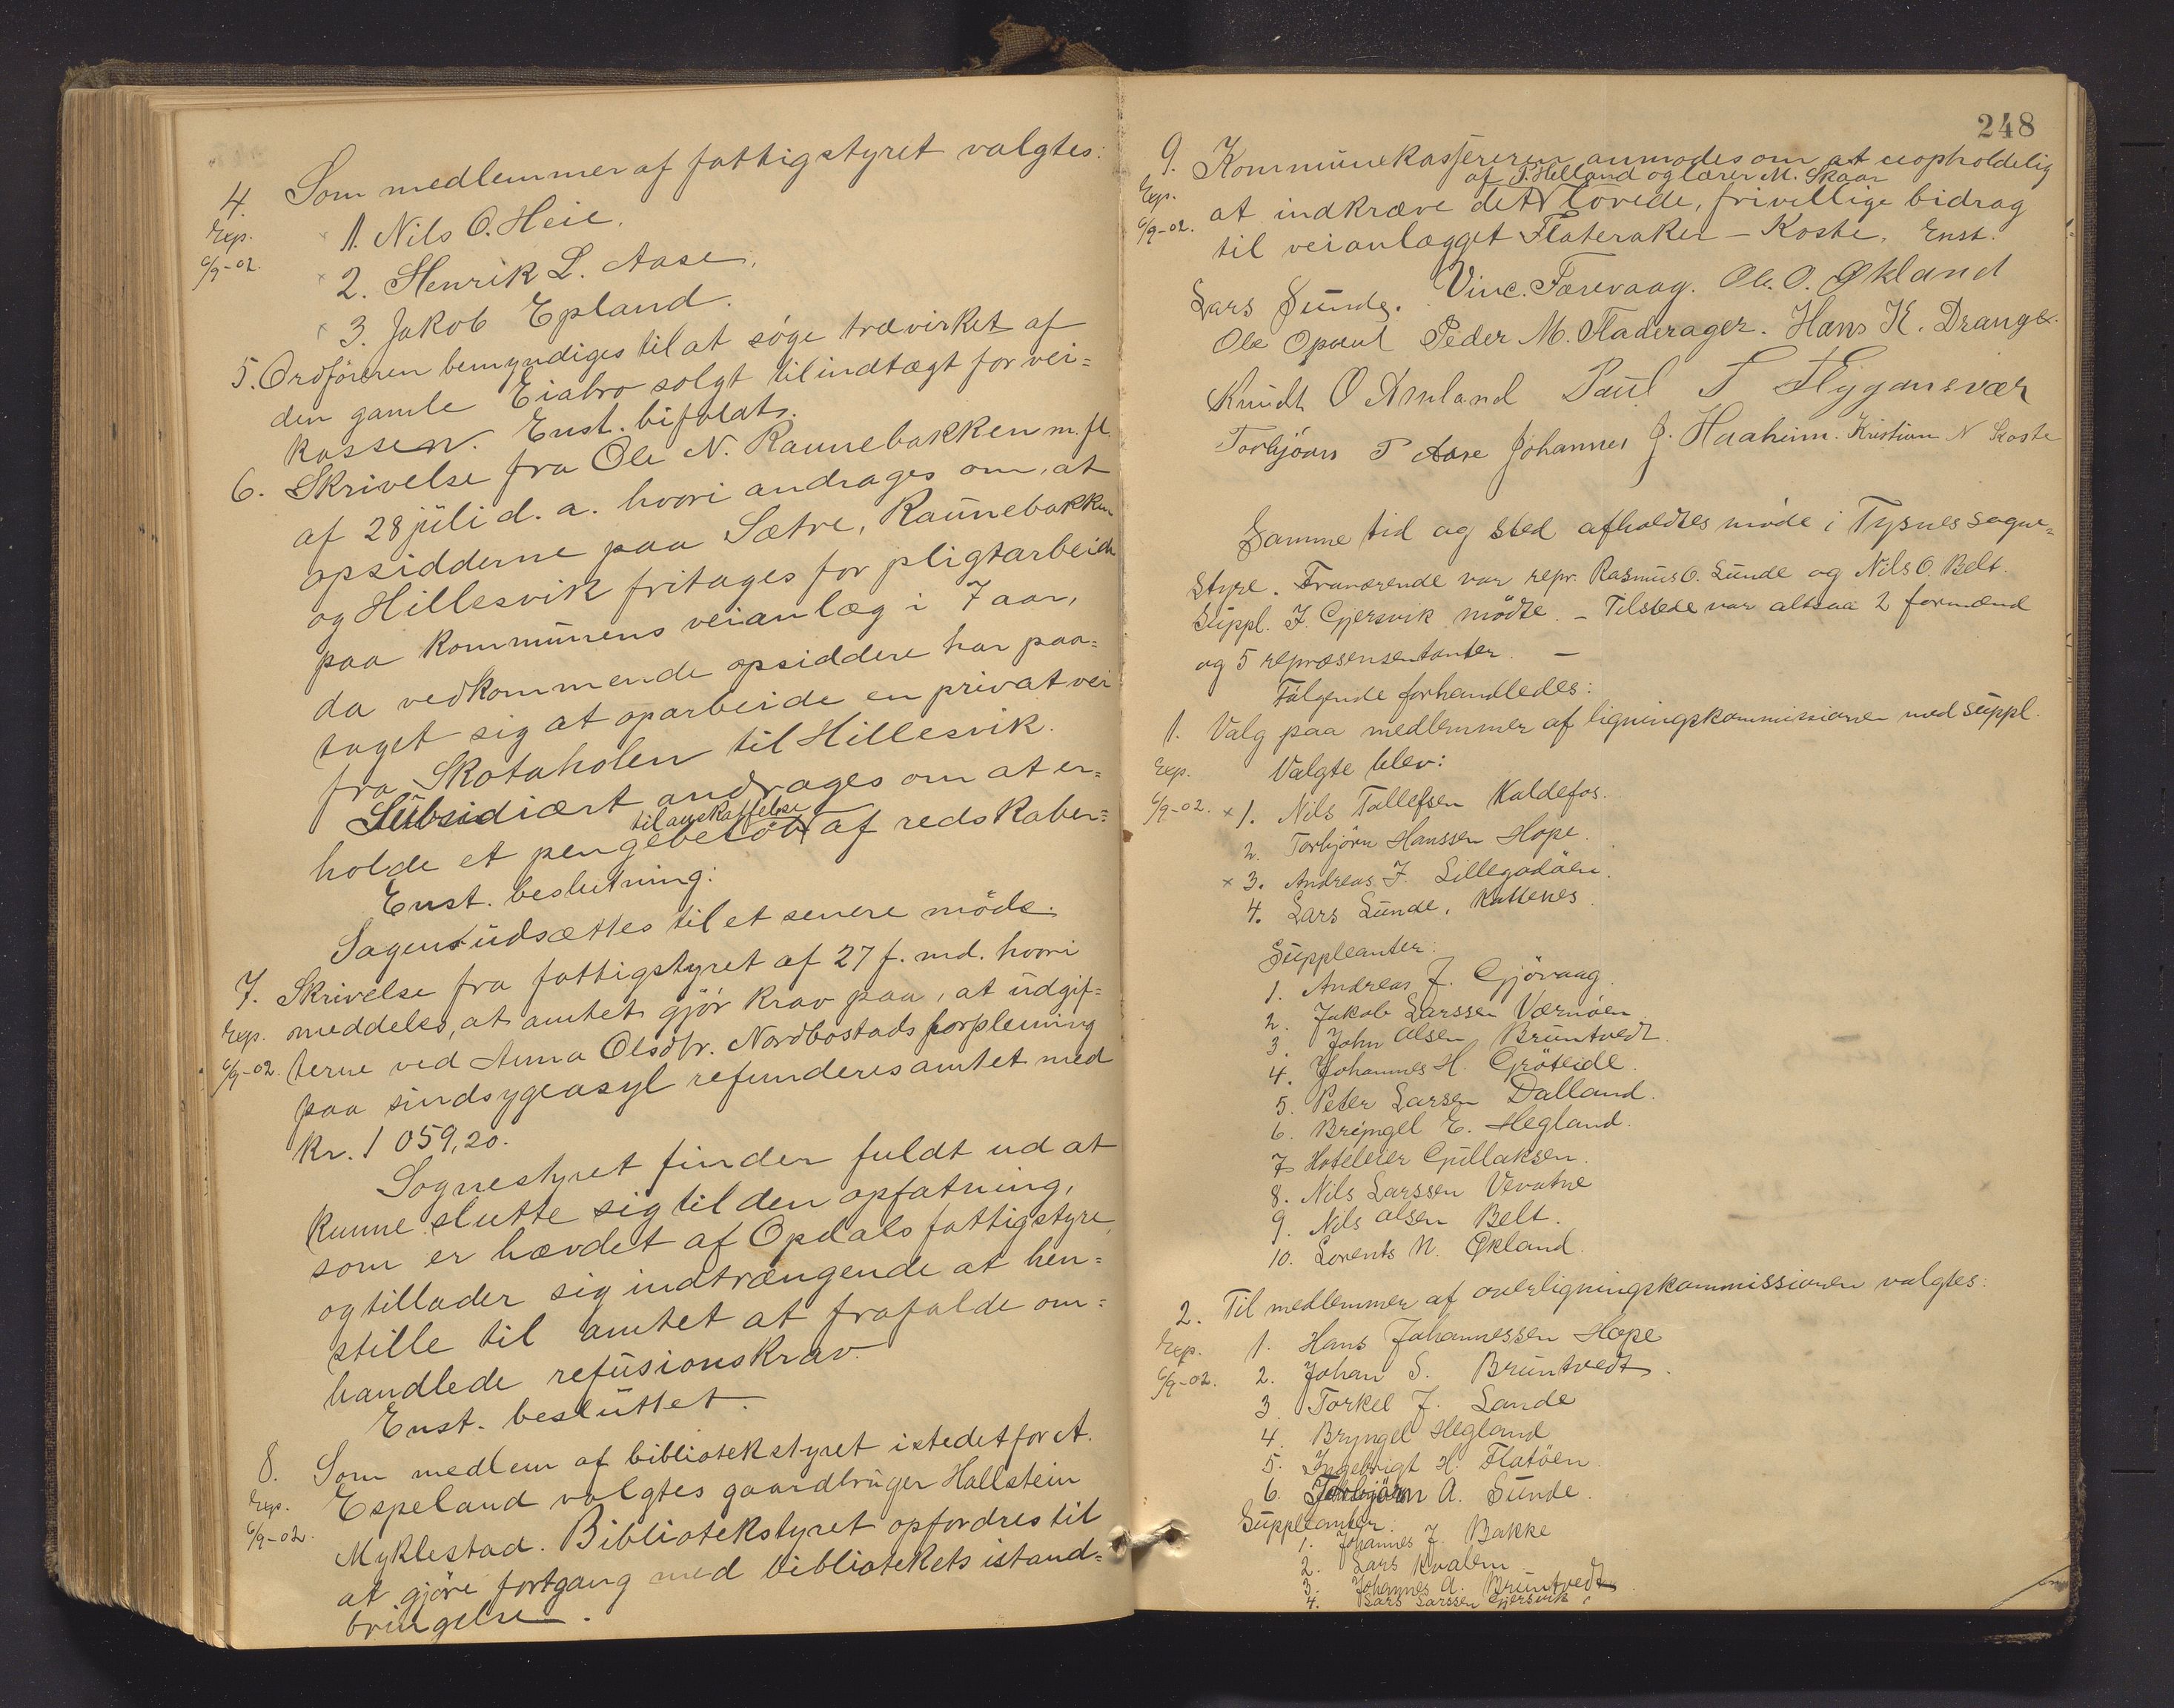 4. Som medlemmer af fattigstyret valgtes:
Exp. × 1. Nils O. Heie.
6/9-02. × 2. Henrik L. Aase.
× 3. Jakob Epland.
5. Ordföreren bemyndiges til at søge trævirket af
den gamle Eiabro solgt til indtægt for vei=
kassen. Enst. bifaldt.
6. Skrivelse fra Ole N. Raunebakken m. fl.
af 28 juli d. a. hvori andrages om, at
opsidderne paa Sætre, Raunebakken
og Hillesvik fritages for pligtarbeide
paa kommunens veianlæg i 7 aar,
da vedkommende opsiddere har paa=
taget sig at oparbeide en privat vei
fra Skotaholen til Hillesvik.
Subsidiært andrages om at er=
til anskaffelse
holde et pengebeløb af redskaber=
Enst. beslutning:
Sagen udsættes til et senere møde.
7. Skrivelse fra fattigstyret af 27 f. md. hvori
Exp. meddeles, at amtet gjør krav paa, at udgif=
6/9-02. terne ved Anna Olsdtr. Nordbøstads forpleining
paa sindsygeasyl refunderes amtet med
Kr. 1 059,20.
Sognestyret finder fuldt ud at
kunne slutte sig til den opfatning,
som er hævdet af Opdals fattigstyre,
og tillader sig indtrængende at hen=
stille til amtet at frafalde om=
handlede refusionskrav.
Enst. besluttet.
8. Som medlem af bibliotekstyret istedetfor A.
Exp. Espeland valgtes gaardbruger Hallstein
6/9-02. Myklestad. Bibliotekstyret opfordres til
at gjøre fortgang med bibliotekets istand=
bringelse.
248
9. Kommunekassereren anmodes om at uopholdelig
af P. Helland og lærer M. Skaar
Exp. at indkræve det lovede, frivillige bidrag
6/9-02. til veianlægget Flateraker - Koste. Enst.
Lars Sunde. Vinc. Færevaag. Ole O. Økland
Ole Opdal Peder M. Fladerager. Hans K. Drange.
Knudt O Amland Paul T Flygansvær
Torbjörn T Aase Johannes J. Haaheim. Kristian N Koste
Samme tid og sted afholdtes møde i Tysnes sogne=
styre. Fraværende var repr. Rasmus O. Sunde og Nils O. Belt.
Suppl. J. Gjersvik mødte. - Tilstede var altsaa 2 formænd
og 5 repræsensentanter. -
Følgende forhandledes:
1. Valg paa medlemmer af ligningskommissionen med suppl.
Exp. Valgte blev:
6/9-02. × 1. Nils Tollefsen Kaldefos.
2. Torbjörn Hanssen Hope.
× 3. Andreas J. Lillegadöen.
4. Lars Sunde, Kattenes.
Suppleanter:
1. Andreas J. Gjövaag.
2. Jakob Larssen Værnöen
3. John Olsen Bruntvedt.
4. Johannes H. Gröteide.
5. Peter Larsen Dalland.
6. Bryngel E. Hegland.
7 Hoteleier Gullaksen.
8. Nils Larssen Vevatne
9. Nils Olsen Belt.
10. Lorents N. Økland.
2. Til medlemmer af overligningskommissionen valgtes:
Exp. 1. Hans Johannessen Hope
6/9-02. 2. Johan S. Bruntvedt.
3 Torkel J. Lande
4. Bryngel Hegland
5. Ingebrigt H. Flatöen.
6. Torbjörn A. Sunde.
Suppleanter.
1. Johannes J. Bakke
2. Lars Kvalem
3. Johannes A. Bruntvedt
4. Lars Larssen Gjersvik.